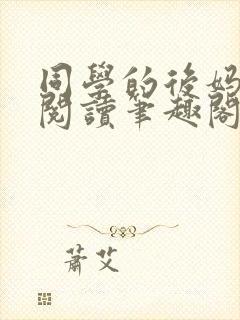 同學的後媽
閱讀筆趣閣
蕭艾